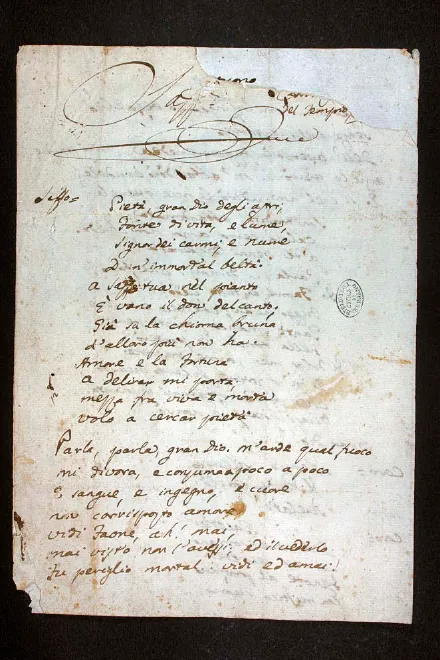 del tempio
Saffo=
Pietà gran Dio degli astri,
fonte di vita, e lume,
Signor dei carmi, e nume
D'un'immortal beltà.
A Saffo tua nel pianto
È vano il don del canto.
Già su la chioma bruna
d'alloro più non ha.
Amore e la fortuna
a delirar mi porta
mezza fra viva e morta
volo a cercar pietà
Parla, parla, gran Dio. m'arde qual fuoco
mi divora, e consuma a poco a poco
e sangue, e ingegno, e cuore
non corrisposto amore
vidi Faone, ah! mai,
mai visto non l'avessi, ed il vederlo
fu periglio mortal: vidi ed amai!